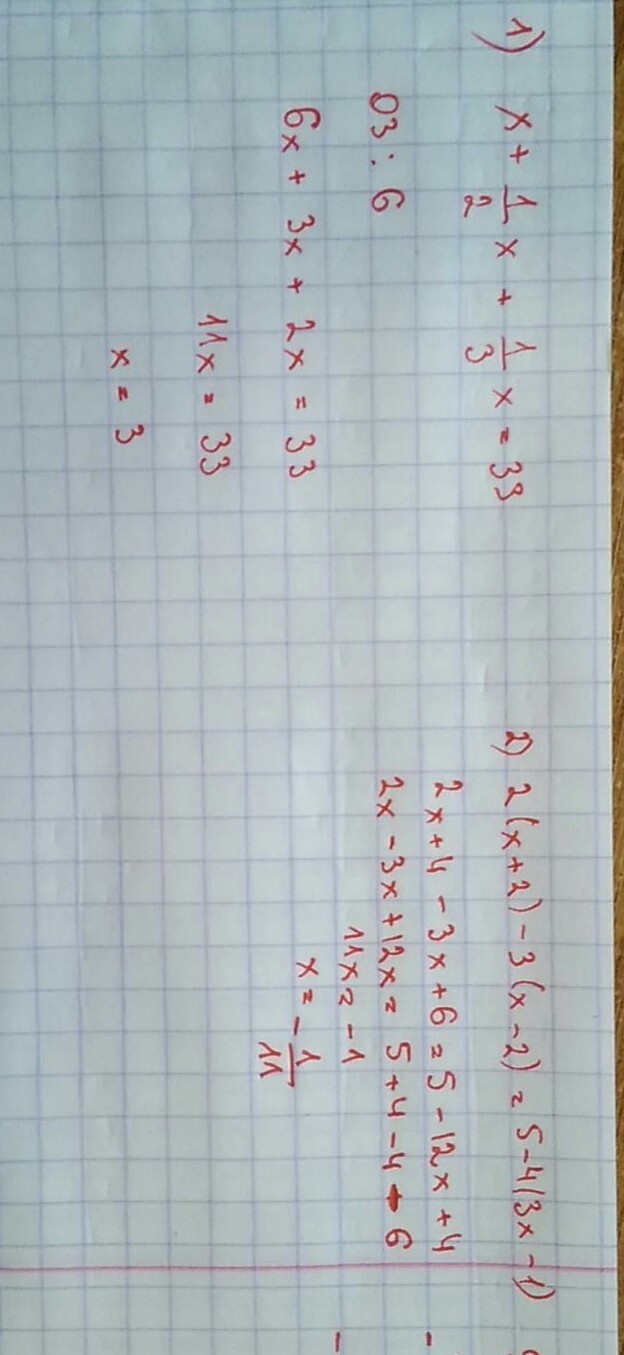 1) x + 1/2 x + 1/3 x = 33
03 : 6
6x + 3x + 2x = 33
11x = 33
x = 3
2) 2(x+2) - 3(x-2) = 5-4(3x-1)
2x+4 - 3x+6 = 5-12x+4
2x - 3x+12x = 5+4-4-6
11x = -1
x = - 1/11